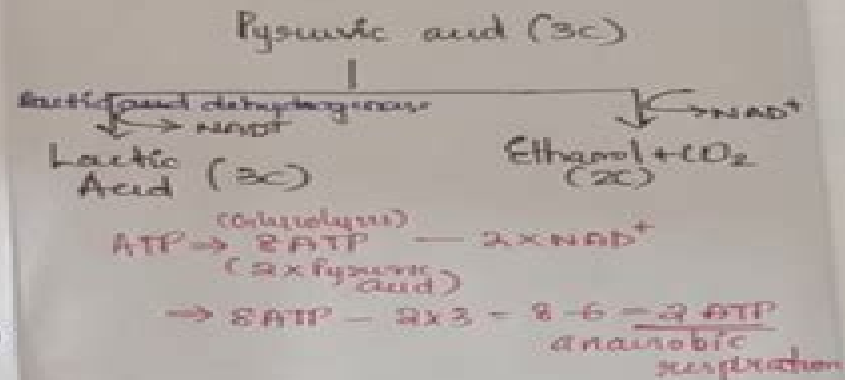 Pyruvic acid (3C)
Lactic acid dehydrogenase
→ NAD+
→ NAD+
Lactic
Acid (3C)
Ethanol + CO2
(2C)
(Glycolysis)
ATP → 8ATP — 2×NAD+
(2×Pyruvic
acid)
→ 8ATP — 2×3 — 8-6 = 2 ATP
anairobic
respiration